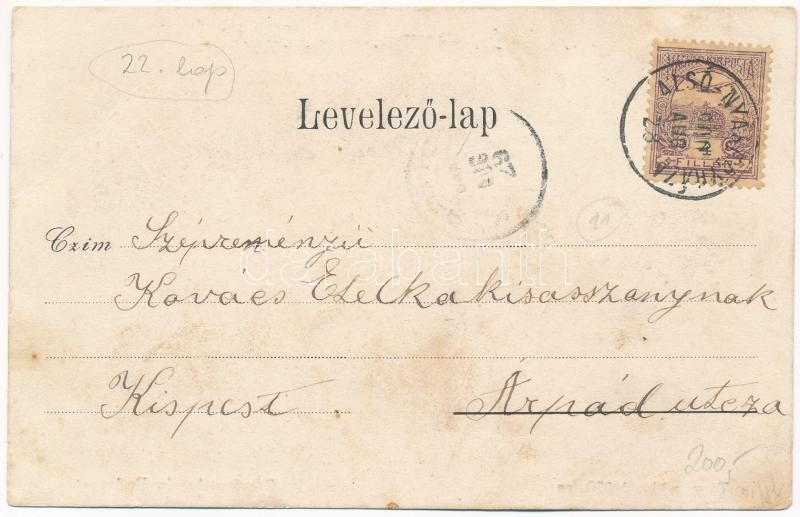 22. lap
Levelező-lap
MAGYAR KIR. POSTA
FILLÉR
ALSÓ-NYÁREGYHÁZA
AUG
28
AUG
29
11
Czim Szépreményű
Kovács Etelka kisasszonynak
Kispest Árpád utcza
200,-
darabanth